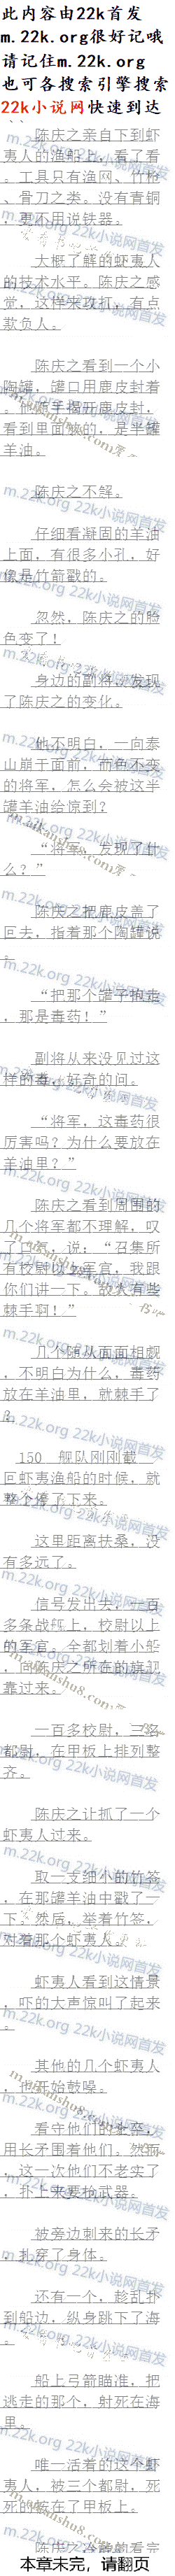 此内容由22k首发
m.22k.org很好记哦
请记住m.22k.org
也可各搜索引擎搜索
22k小说网快速到达
陈庆之亲自下到虾
夷人的渔船上，看了看
。工具只有渔网、竹
、骨刀之类。没有青铜
，更不用说铁器。
大概了解的虾夷人
的技术水平。陈庆之感
觉，大样来攻打，有点
欺负人。
陈庆之看到一个小
陶罐，罐口用鹿皮封着
。他随手揭开鹿皮封，
看到里面装的，是半罐
羊油。
陈庆之不解。
仔细看凝固的羊油
上面，有很多小孔，好
像是竹箭戳的。
忽然，陈庆之的脸
色变了！
身边的副将，发现
了陈庆之的变化。
他不明白，一向泰
山崩于面前，而色不变
的将军，怎么会被这半
罐羊油给惊到？
“将军，发现了什
么？”
陈庆之把鹿皮盖了
回去，指着那个陶罐说
。
“把那个罐子抱走
，那是毒药！”
副将从来没见过这
样的毒，好奇的问。
“将军，这毒药很
厉害吗？为什么要放在
羊油里？”
陈庆之看到周围的
几个将军都不理解，叹
了口气，说：“召集所
有校尉以上军官，我跟
你们讲一下。敌人有些
棘手啊！”
几个随从面面相觑
，不明白为什么，毒药
放在羊油里，就棘手了
？
150　舰队刚刚截
回虾夷渔船的时候，就
整个停了下来。
这里距离扶桑，没
有多远了。
信号发出去，一百
多条战舰上，校尉以上
的军官。全都划着小船
，向陈庆之所在的旗舰
靠过来。
一百多校尉，三名
都尉，在甲板上排列整
齐。
陈庆之让抓了一个
虾夷人过来。
取一支细小的竹签
，在那罐羊油中戳了一
下。然后，举着竹签，
对着那个虾夷人。
虾夷人看到这情景
，吓的大声惊叫了起来
。
其他的几个虾夷人
，也开始鼓噪。
看守他们的士卒，
用长矛围着他们。然而
，这一次他们不老实了
，扑上来要抢武器。
被旁边刺来的长矛
，扎穿了身体。
还有一个，趁乱扑
到船边，纵身跳下了海
。
船上弓箭瞄准，把
逃走的那个，射死在海
里。
唯一活着的这个虾
夷人，被三个都尉，死
死的按在了甲板上。
本章未完，请翻页